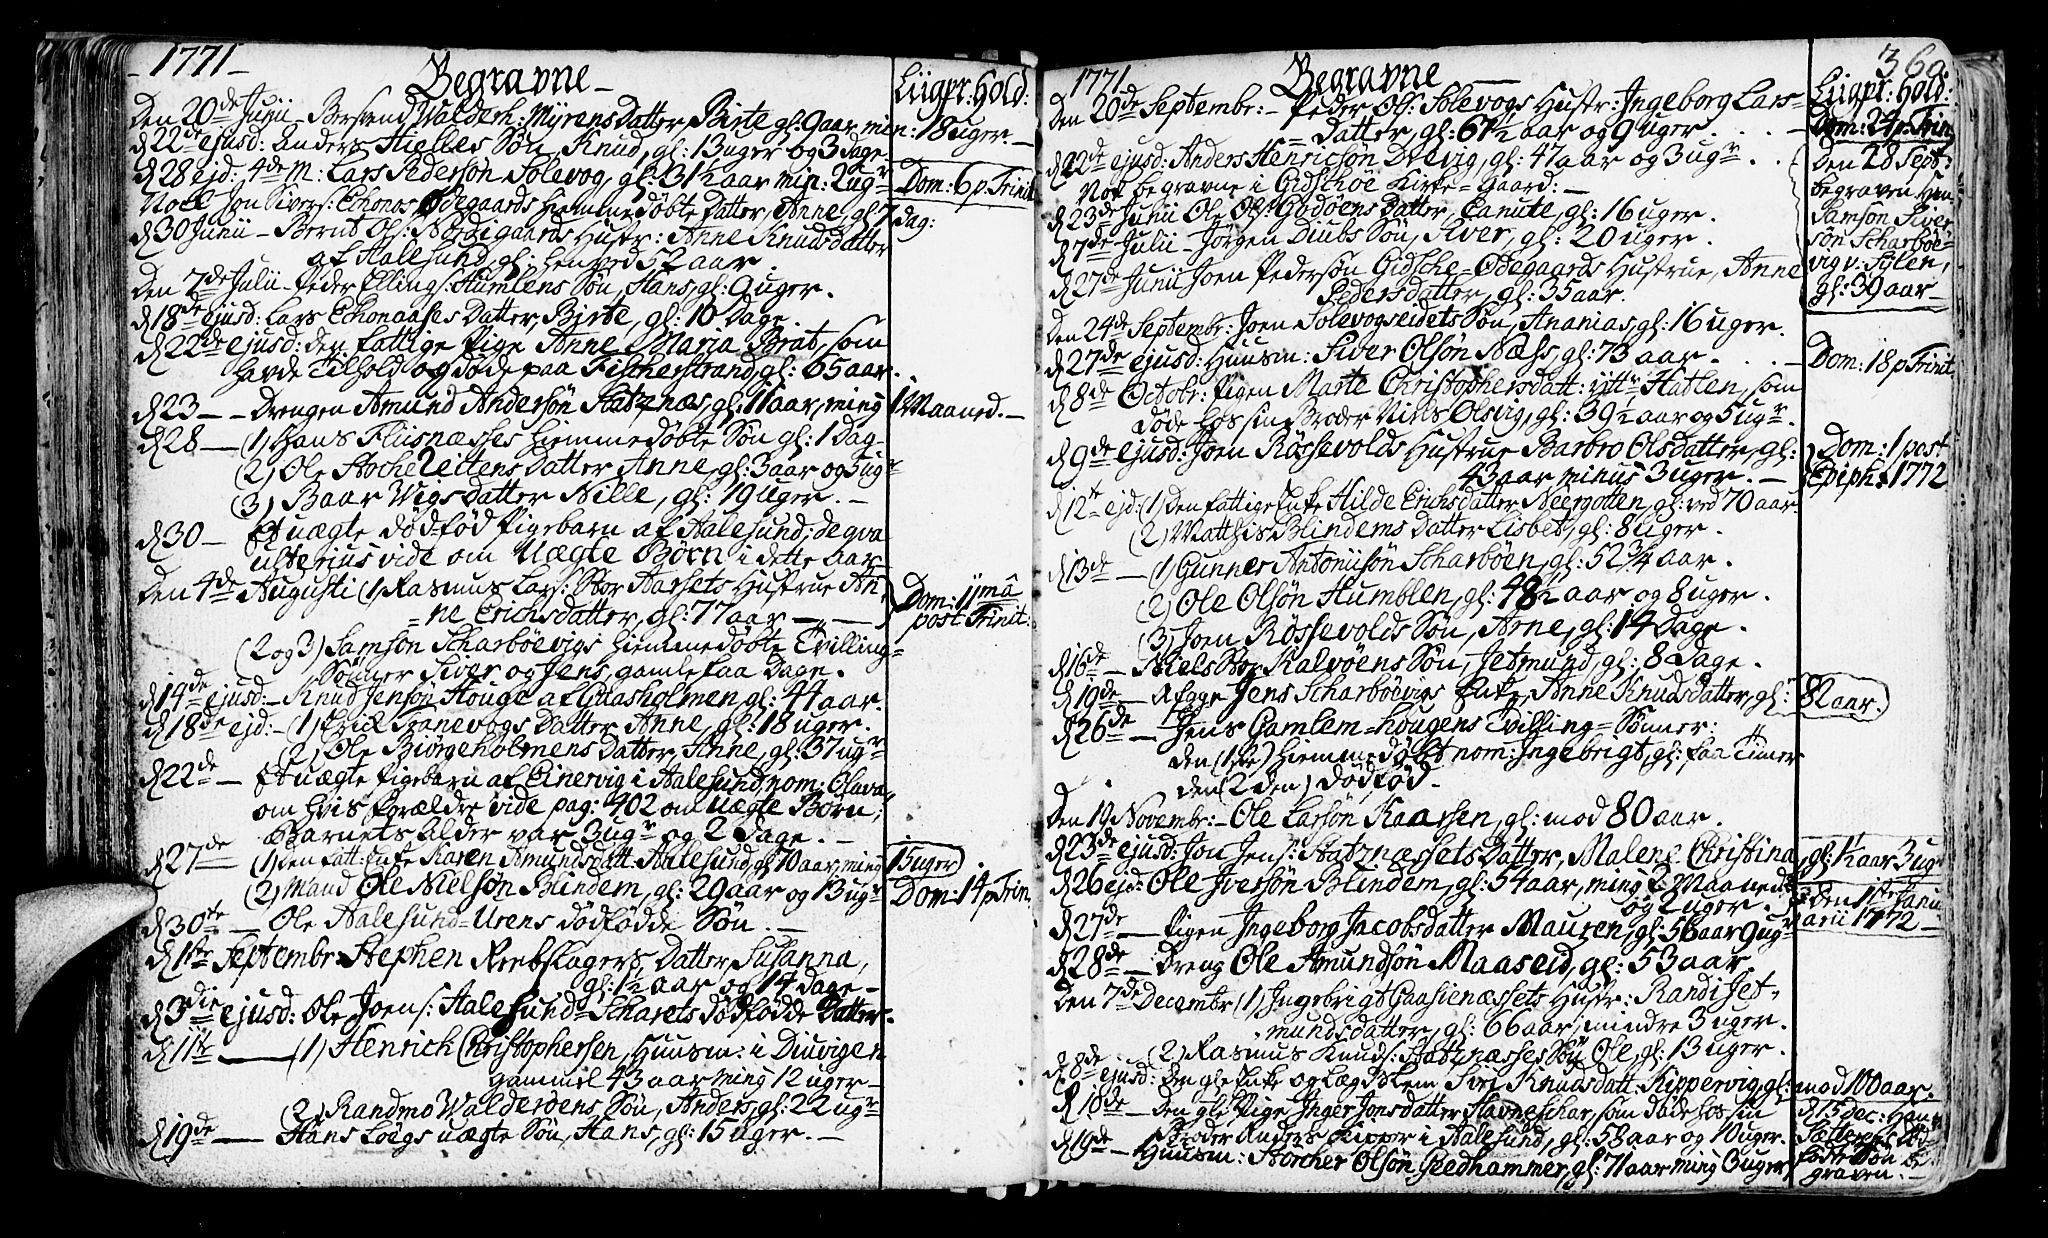 1771
Begravne
Liigpr: Hold:
Den 20de Junii - Bersvend Waldersh: Myrens Datter Birte gl: 9 aar min: 18 uger. -
d 22de ejusd: Anders Hielles Søn Knud, gl: 13 uger og 3 Dage.
d 28 ejd: 4de M: Lars Pederson Solevog, gl: 31½ aar min: 2 ugr
Dom: 6 p: Trinit
Noch Jon Sivers: Echonas Ødegaards hiemmedøbte Datter, Anne, gl 7 dag:
d 30 Junii - Bernt Ols: Nordegaards Hustr: Anne Knudsdatter
af Aalesund, gl: henved 52 aar.
Den 7de Julii - Peder Ellings: Humlens Søn, Hans, gl: 9 uger.
d 18de ejusd: Lars Echonaases Datter, Birte, gl: 10 Dage.
d 22de ejusd: den fattige Pige Anne Maria Brat, som
havde Tilhold og døde paa Fischerstrand, gl: 65 aar.
d 23 - - Drengen Amund Andersøn Slatznæs, gl: 11 aar, ming 1 Maaned. -
d 28 - (1) Hans Fliisnæsses hiemmedøbte Søn gl: 1 Dag-
(2) Ole Stoche Reitens Datter Anne, gl: 3 aar og 3 ugr
(3) Baar Wigs datter Nille, gl: 19 uger. -
d 30 - Et uægte dødfød Pigebarn af Aalesund; de qva
ulterius vide om Uægte Børn i dette aar
Den 4de Augusti (1) Rasmus Lars: Stor Aarsets Hustrue An
= ne Erichsdatter, gl: 77 aar -
Dom: 11mâ
post Trinit:
(2 og 3) Samson Scharbøevigs hiemmedøbte Tvilling=
Sønner Siver og Jens, gamle faa Dage.
d 14de ejusd - Knud Jensøn Houge af Gaasholmen, gl: 44 aar.
d 18de ejd: - (1) Erich Tranevogs Datter Anne, gl: 18 uger.
(2) Ole Biørgeholmens Datter, Anne, gl: 37 ugr
d 22de - Et uægte Pigebarn af Einervig i Aalesund, nom: Olava,
om hvis forældre vide pag: 402 om uægte Børn;
Barnets Alder var 3 ugr og 2 Dage. -
d 27de - (1) Den fatt: Enke Karen Amundsdatt: Aalesund, gl 70 aar, ming 15 uger
(2) Mand Ole Nielsøn Blindem, gl: 29 aar og 13 ugr
Dom: 14 p Trin,
d 30te - Ole Aalesund-Urens dødfødde Søn. -
d 1ste Septembr: Stephen Reebslagers Datter, Susanna,
gl: 1½ aar og 14 Dage -
d 3die ejusd: Ole Joens: Aalesund=Scharets dødfødde Datter.
d 11te - (1) Henrich Christophersen, Huusm: i Diuvigen
gammel 43 aar ming 12 uger -
(2) Randmo Walderøens Søn, Anders, gl: 22 ugr
d 19de - Hans Løgs uægte Søn, Hans, gl: 15 uger. -
1771
Begravne -
360.
Liigpr: Hold:
Den 20de Septembr: - Peder Ols: Solevogs Hustr: Ingeborg Lars-
= datter, gl: 61½ aar og 9 uger. . . -
Dom: 24 p: Trin
d 22de ejusd: Anders Henricsøn Dvevig, gl: 47 aar og 3 ugr. . .
Nok begravne i Gidschøe Kirke=Gaard: -
d 23de Junii Ole Ols: Godøens Datter, Canute, gl: 16 uger.
d 7de Julii - Jørgen Diubs Søn, Siver, gl: 20 uger.
d 27de Junii Joen Pedersøn Gidsche=Ødegaards Hustrue, Anne
Pedersdatter, gl: 35 aar.
Den 28 Sept:
begraven Hen
Samson Siver
søn Scharbøe=
vig v: Sylen,
gl: 39 aar -
Den 24de Septembr: Joen Solevogseidets Søn, Ananias, gl: 16 uger.
d 27de ejusd: Huusm: Siver Olsøn Næss, gl: 73 aar. . . -
Dom: 18 p Trinit.
d 8de Octobr: Pigen Marte Christophersdatt: yttr Hatlen, som
døde hos sin Broder Nils Olsvig, gl: 39½ aar og 5 ugr.
d 9de ejusd: Joen Røssevolds Hustrue Barbro Olsdatter, gl:
43 aar minus 3 uger. -
Dom: 1 post
Epiph: 1772
d 12te ejd: (1) Den fattige Enke Hilde Erichsdatter Neergotten, gl: ved 70 aar.
(2) Matthis Blindems Datter Lisbet, gl: 8 uger.
d 13de - (1) Gunner Antoniisøn Scharbøen, gl: 52¾ aar.
(2) Ole Olsøn Humblen, gl: 48½ aar og 8 uger.
(3) Joen Røssevolds Søn, Arne, gl: 14 Dage.
d 16de - Niels Stor Kalvøens Søn, Jetmund, gl: 8 Dage.
d 19de - Afage Jens Scharbøevigs Enke, Anne Knudsdatter, gl: 82 aar.
d 26de - Jens Gamlem=hougens Tvilling=Sønner:
den (1ste) hiemmedøbt nom: Ingebrigt, gl: faa Timer
den (2den) dødfød.
Den 19 Novembr: - Ole Larsøn Kaarsen, gl: mod 80 aar.
d 23de ejusd: Jon Jens: Slatznæssets Datter, Malene Christina, gl: 1½ aar 3 ugr
d 26 ejd: Ole Iversøn Blindem, gl: 54 aar, ming 2 Maaneder
og 2 uger.
den 1ste Janu
arii 1772 -
d 27de - Pigen Ingeborg Jacobsdatter Mauren, gl: 56 aar 9 ugr
d 28de - Dreng Ole Amundsøn Maaseid, gl: 53 aar
Den 7de Decembr (1) Ingebrigt Gaasienæssets Hustr: Randi Jet-
mundsdatter, gl: 66 aar, mindre 3 uger.
(2) Rasmus Knuds: Slatznæsses Søn Ole, gl: 13 uger.
d 8de ejusd: Den gle Enke og Lægdslem Siri Knudsdatt: Kippervig, gl: mod 100 aar.
d 18de - Den gle Pige Inger Jonsdatter Stavneschar, som døde hos sin
Broder Anders Kipper i Aalesund, gl: 58 aar og 10 uger.
d 19de - Huusm: Storcher Olsøn Geedhammer, gl: 71 aar ming 3 uger
d 15 Dec: Han
død=
fødde Søn be=
graven. -